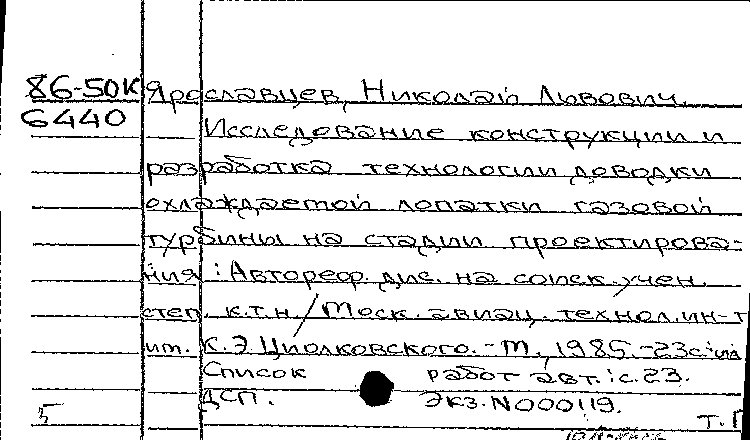 86-50К Ярославцев, Николай Львович.
6440 Исследование конструкции и
разработка технологии доводки
охлаждаемой лопатки газовой
турбины на стадии проектирова-
ния : Автореф. дис. на соиск. учен.
степ. к.т.н / Моск. авиац. технол. ин-т
им. К.Э. Циолковского. - М., 1985. - 23с : ил
Список работ авт. : с. 23.
ДСП. Экз. N000119.
5 т. Г